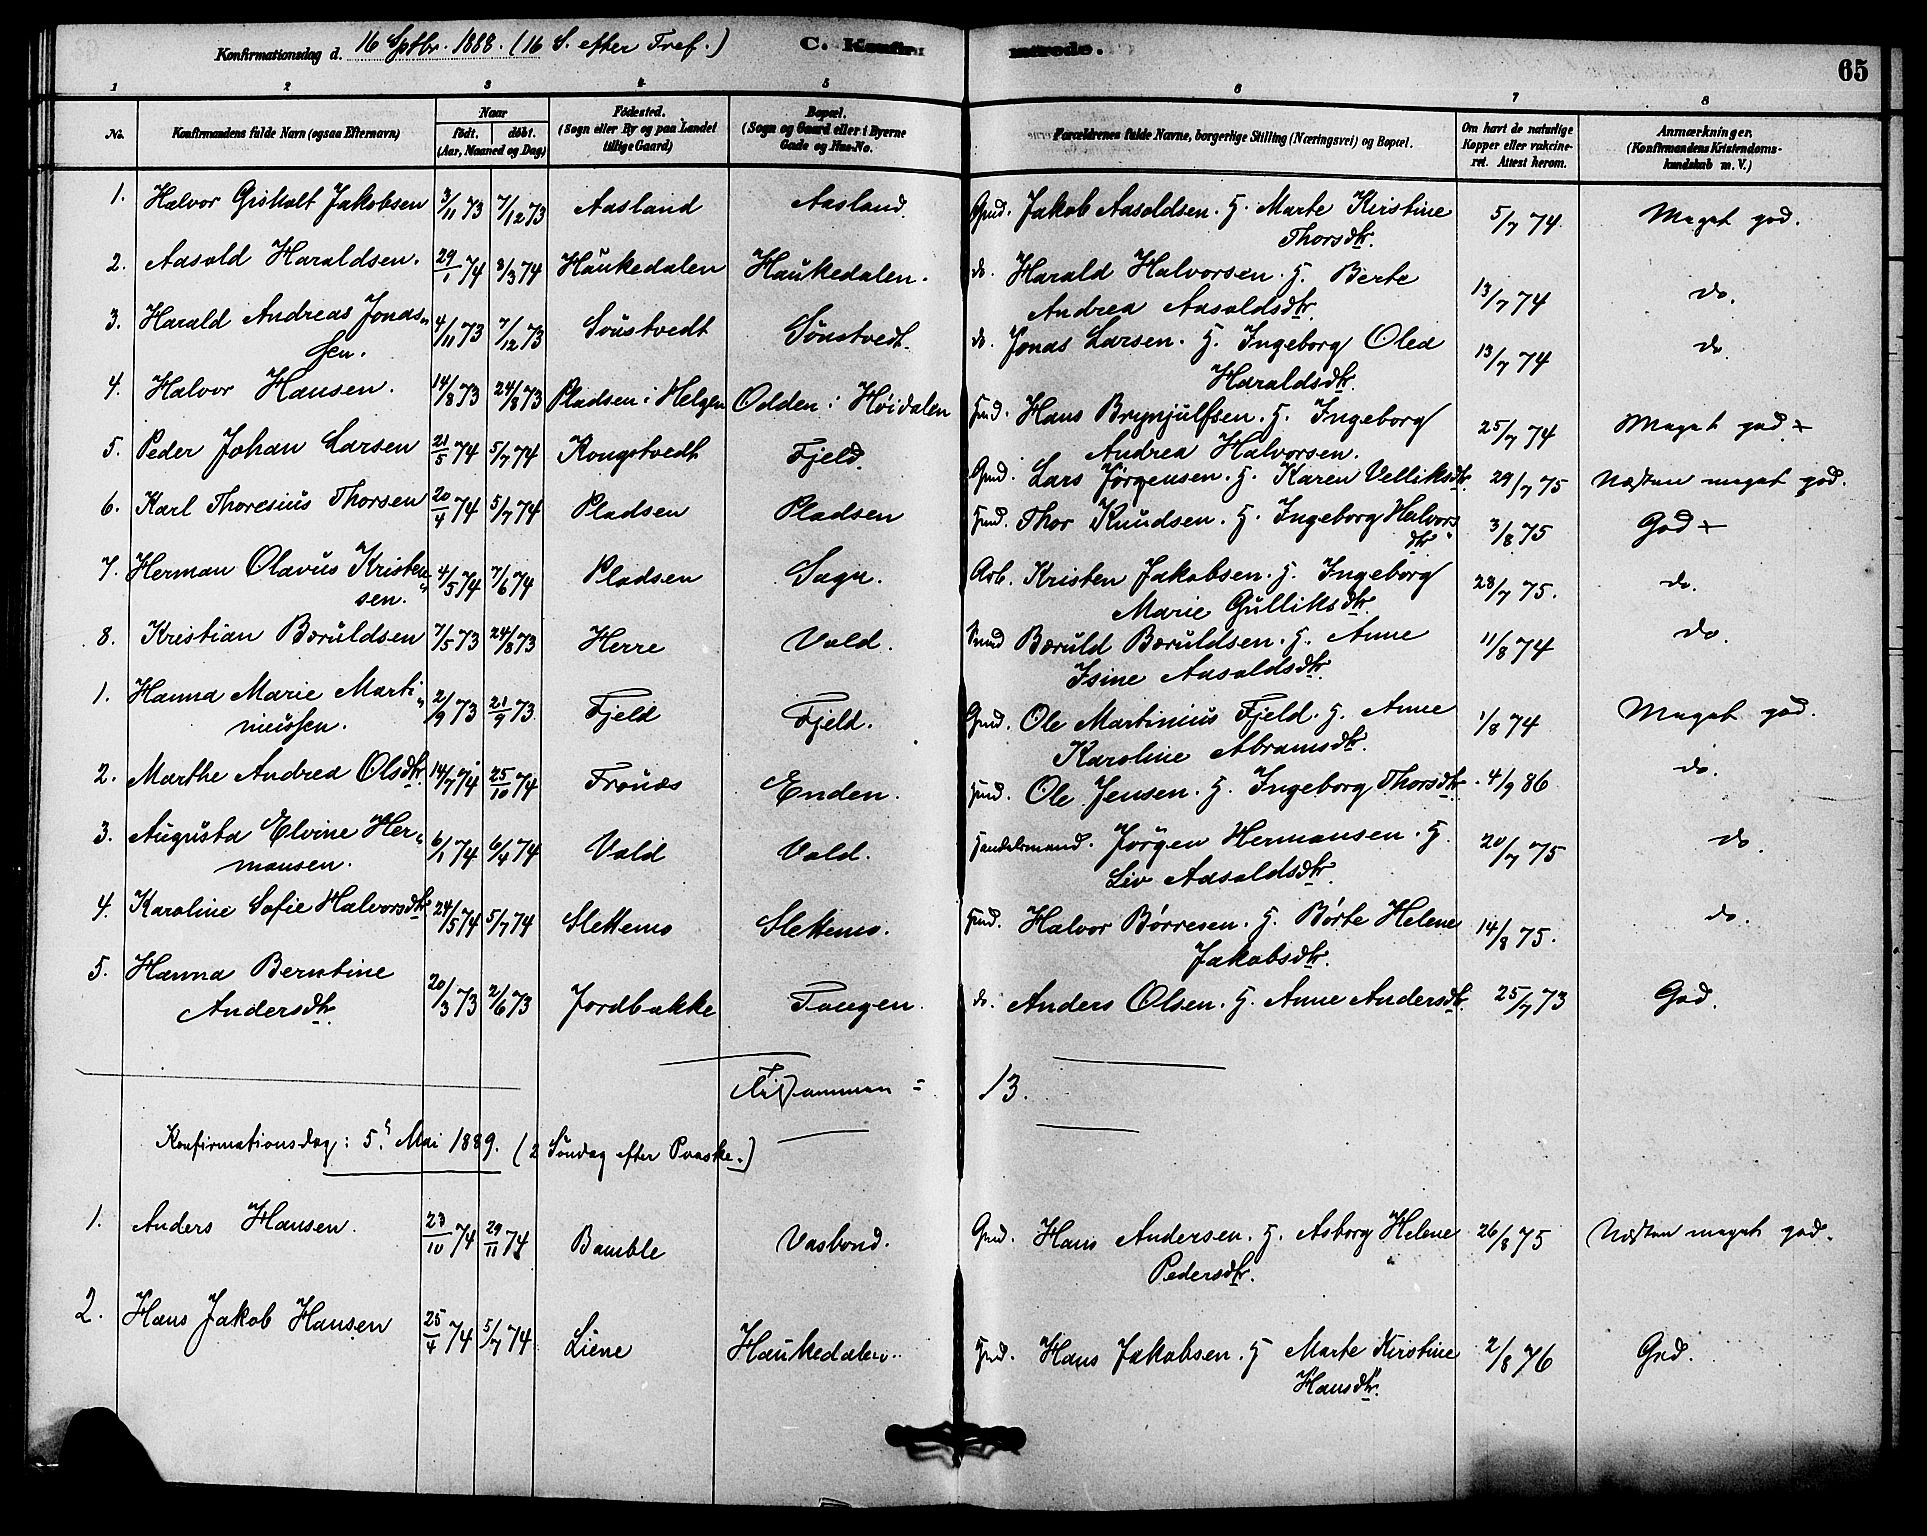 Konfirmationsdag d. 16 Sptbr. 1888. (16 S. efter Tref.) C. Konfirmerede. 65
1 2 3 4 5 6 7 8
No. Konfirmandens fulde Navn (ogsaa Efternavn) Naar født. døbt. (Aar, Maaned og Dag) Fødested. (Sogn eller By og paa Landet tillige Gaard) Bopæl. (Sogn og Gaard eller i Byerne Gade og Hus-No. Forældrenes fulde Navne, borgerlige Stilling (Næringsvei) og Bopæl. Om havt de naturlige Kopper eller vakcineret. Attest herom. Anmærkninger. (Konfirmandens Kristendomskundskab m. V.)
1. Halvor Gisholt Jakobsen 3/11 73 7/12 73 Aasland Aasland. Gmd. Jakob Aasoldsen. H. Marte Kirstine
Thorsdtr. 5/7 74 Meget god.
2. Aasold Haraldsen. 29/1 74 8/3 74 Haukedalen Haukedalen. do. Harald Halvorsen. H. Berte
Andrea Aasoldsdtr. 13/7 74 do.
3. Harald Andreas Jonas-
sen. 4/11 73 7/12 73 Sønstvedt Sønstvedt. do. Jonas Larsen. H. Ingeborg Olea
Haraldsdtr. 13/7 74 do
4. Halvor Hansen. 14/8 73 24/8 73 Pladsen i Helgen Odden i Høidalen Hmd. Hans Brynjulfsen. H. Ingeborg
Andrea Halvorsen. 25/7 74 Meget god
5. Peder Johan Larsen 21/5 74 5/7 74 Rongstvedt Fjeld. Gmd. Lars Jørgensen. H. Karen Velliksdtr. 29/7 75 Næsten meget god.
6. Karl Thoresius Thorsen 20/4 74 5/7 74 Pladsen Pladsen Hmd. Thor Knudsen. H. Ingeborg Halvors
dtr. 3/8 75 God
7. Herman Olavus Kristen-
sen. 4/5 74 7/6 74 Pladsen Sagn. Arb. Kristen Jakobsen. H. Ingeborg
Marie Gulliksdtr. 23/7 75. do.
8. Kristian Bæruldsen 7/5 73 24/8 73 Herre Vold. Bæruld Bæruldsen. H. Anne
Isine Aasoldsdtr. 11/8 74 do.
1. Hanna Marie Marti-
niussen. 2/9 73 21/9 73 Fjeld Fjeld. Gmd. Ole Martinius Fjeld. H. Anne
Karoline Abramsdtr. 1/8 74 Meget god.
2. Marthe Andrea Olsdtr. 14/7 74 25/10 74 Frønæs Enden. Hmd. Ole Jensen. H. Ingeborg Thorsdtr. 4/9 86 do.
3. Augusta Elvine Her-
mansen. 6/1 74 6/4 74 Vold Vold. Handelsmand. Jørgen Hermansen. H.
Liv Aasoldsdtr. 20/7 75 do.
4. Karoline Sofie Halvorsdtr. 24/5 74 5/7 74 Slettemo Slettemo. Hmd. Halvor Børresen. H. Børte Helene
Jakobsdtr. 14/8 75. do.
5. Hanna Berntine
Andersdtr. 20/3 73 2/6 73 Jordbakke Tangen. do. Anders Olsen. H. Anne Andersdtr. 25/7 73 God.
Tilsammen = 13.
Konfirmationsdag: 5. Mai 1889. (2 Søndag efter Paaske.)
1. Anders Hansen. 23/10 74 29/11 74 Bamble Vasbond. Gmd. Hans Andersen. H. Asborg Helene
Pedersdtr. 26/8 75 Næsten meget god.
2. Hans Jakob Hansen 25/4 74 5/7 74 Liene Haukedalen. Gmd. Hans Jakobsen. H Marte Kirstine
Hansdtr. 2/8 76 God.